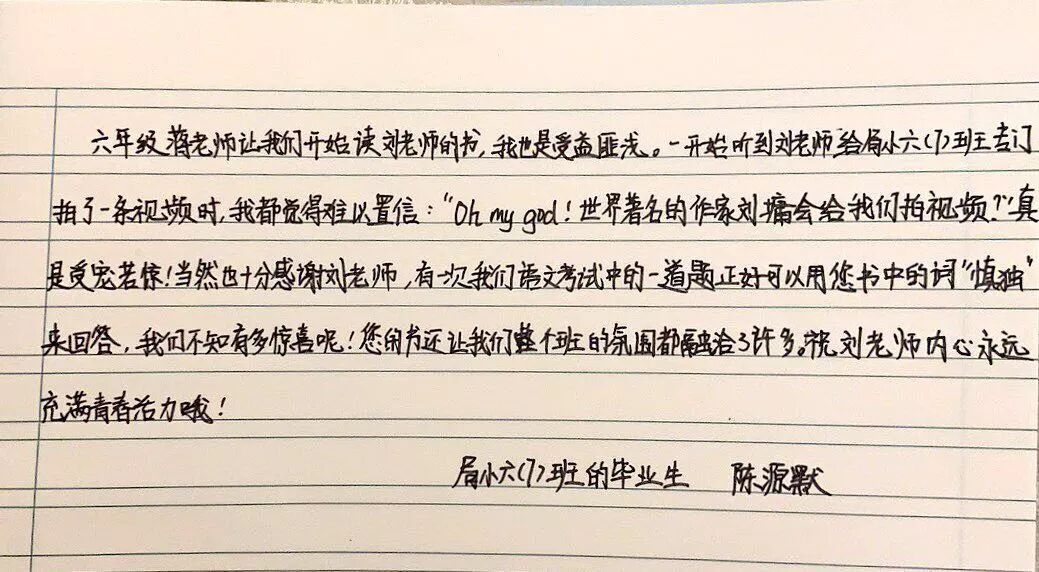 六年级蒋老师让我们开始读刘老师的书,我也是受益匪浅。一开始听到刘老师给局小六(7)班专门
拍了一条视频时,我都觉得难以置信:“Oh my god!世界著名的作家刘墉会给我们拍视频?”真
是受宠若惊!当然也十分感谢刘老师,有一次我们语文考试中的一道题正好可以用您书中的词“慎独”
来回答,我们不知有多惊喜呢!您的书还让我们整个班的氛围都融洽了许多。祝刘老师内心永远
充满青春活力哦!
局小六(7)班的毕业生 陈源默